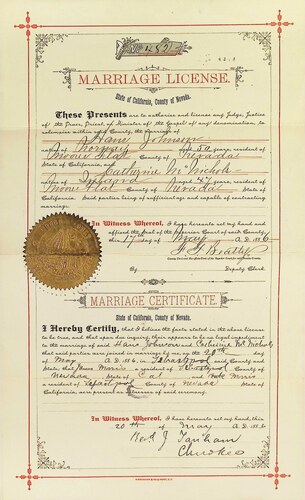 MARRIAGE LICENSE.
State of California, County of Nevada.
These Presents are to authorize and license any Judge, Justice
of the Peace, Priest, or Minister of the Gospel of any denomination, to
solemnize within said County, the marriage of
Hans Johnson
native of Norway aged 50 years, resident of
Moore Flat County of Nevada
State of California, and
Catherine McNichols
native of Ireland aged 47 years, resident of
Moore Flat County of Nevada State of
California. Said parties being of sufficient age and capable of contracting
marriage.
In Witness Whereof, I have hereunto set my hand and
affixed the Seal of the Superior Court of said County,
this 17 day of May A.D.
F. G. Beatty
By
Deputy Clerk.
MARRIAGE CERTIFICATE.
State of California, County of Nevada.
I Hereby Certify, that I believe the facts stated in the above license
to be true, and that upon due inquiry, there appears to be no legal impediment
to the marriage of said Hans Johnson and Catherine McNichols
that said parties were joined in marriage by me, on the 20th day
of May A.D. in said County and
State; that James
a resident of County of
Nevada State of Cal and
a resident of County of Nevada State of
California, were present as witnesses
In Witness Whereof, I have hereunto set my hand, this
20th of May A.D.
J.
Cherokee